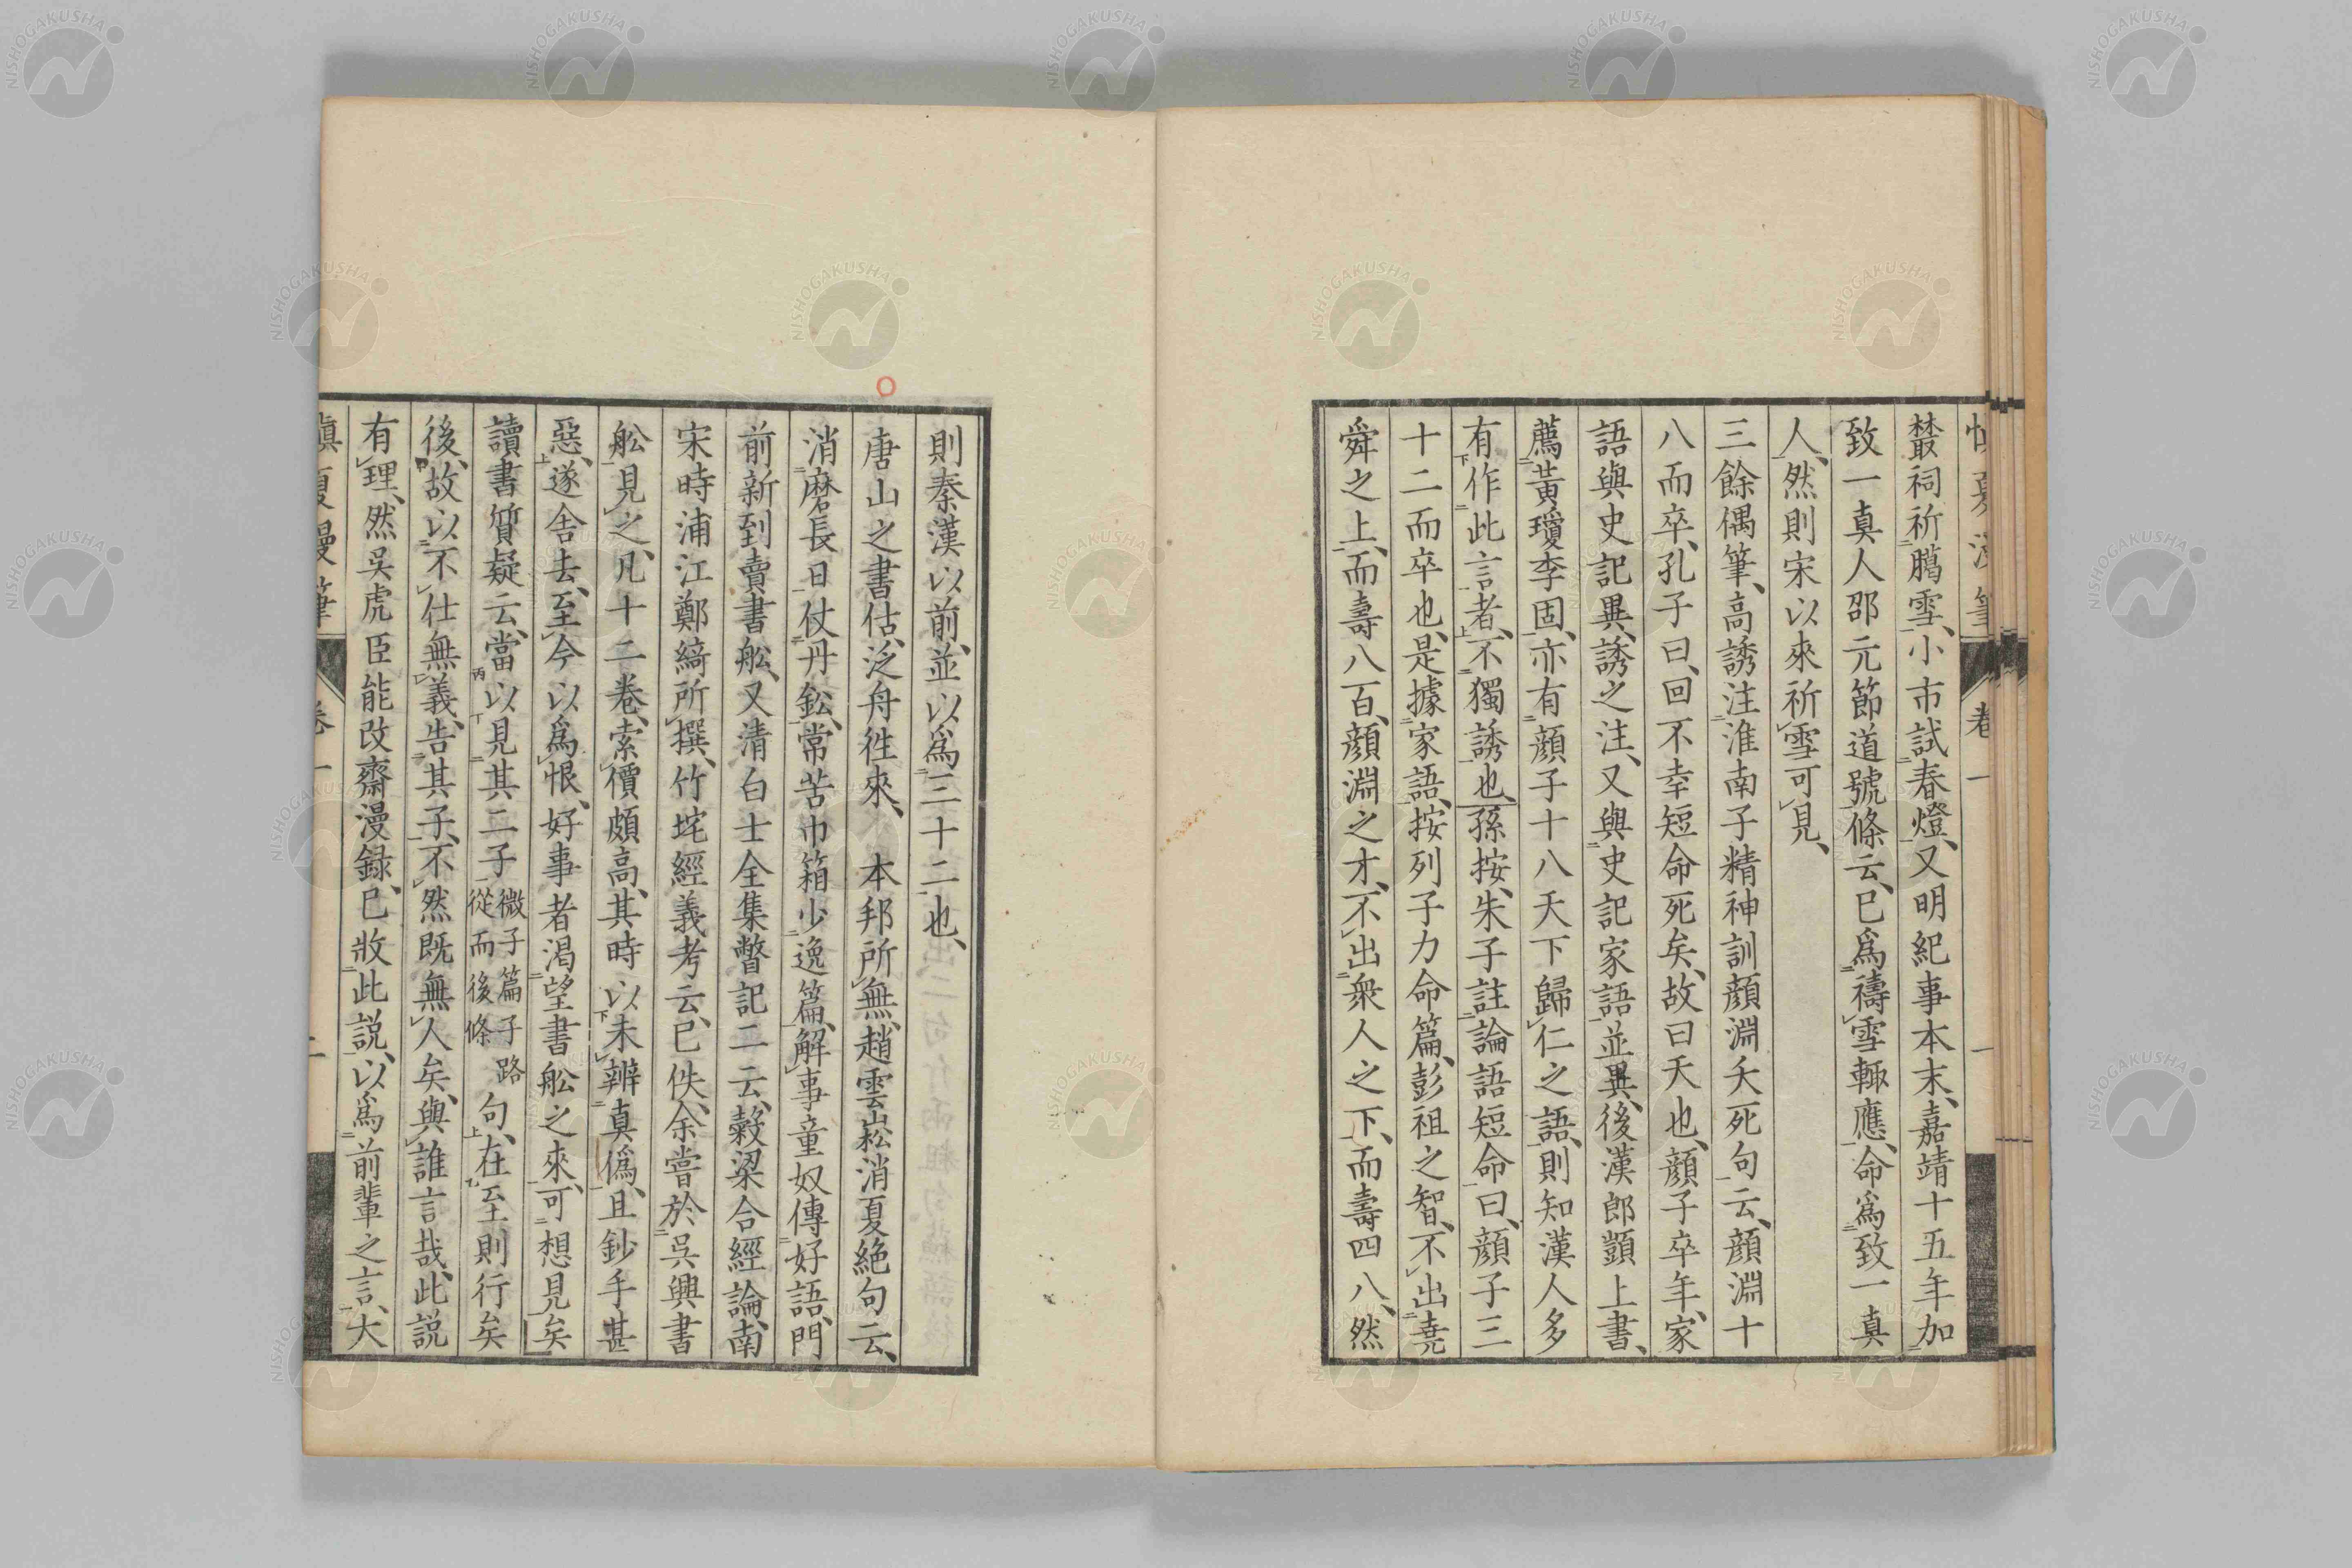 叢祠祈臈雪、小市試春燈、又明紀事本末、嘉靖十五年加
致一真人邵元節道號條云、已爲禱雪輙應、命爲致一真
人、然則宋以來祈雪可見、
三餘偶筆、高誘注淮南子精神訓顔淵夭死句云、顔淵十
八而卒、孔子曰、回不幸短命死矣、故曰夭也、顔子卒年、家
語與史記異、誘之注、又與史記家語並異、後漢郎顗上書、
薦黃瓊李固、亦有顔子十八天下歸仁之語、則知漢人多
有作此言者、不獨誘也、孫按、朱子註論語短命曰、顔子三
十二而卒也、是據家語、按列子力命篇、彭祖之智、不出堯
舜之上、而壽八百、顔淵之才、不出衆人之下、而壽四八、然
卷一
則秦漢以前、並以爲三十二也、
唐山之書估、泛舟徃來、本邦所無、趙雲崧消夏絶句云、
消磨長日仗丹鈆、常苦巾箱少逸篇、解事童奴傳好語、門
前新到賣書舩、又清白士全集瞥記二云、穀梁合經論、南
宋時浦江鄭綺所撰、竹垞經義考云、已佚、余嘗於呉興書
舩見之、凡十二卷、索價頗高、其時以未辨真僞、且鈔手甚
惡、遂舍去、至今以爲恨、好事者渇望書舩之來、可想見矣
讀書質疑云、當以見其二子微子篇子路從而後條句、在至則行矣
後、故以不仕無義、告其子、不然既無人矣、與誰言哉、此説
有理、然呉虎臣能改齋漫録、已收此説、以爲前輩之言、大
慎夏漫筆 卷一 二
NISHOGAKUSHA